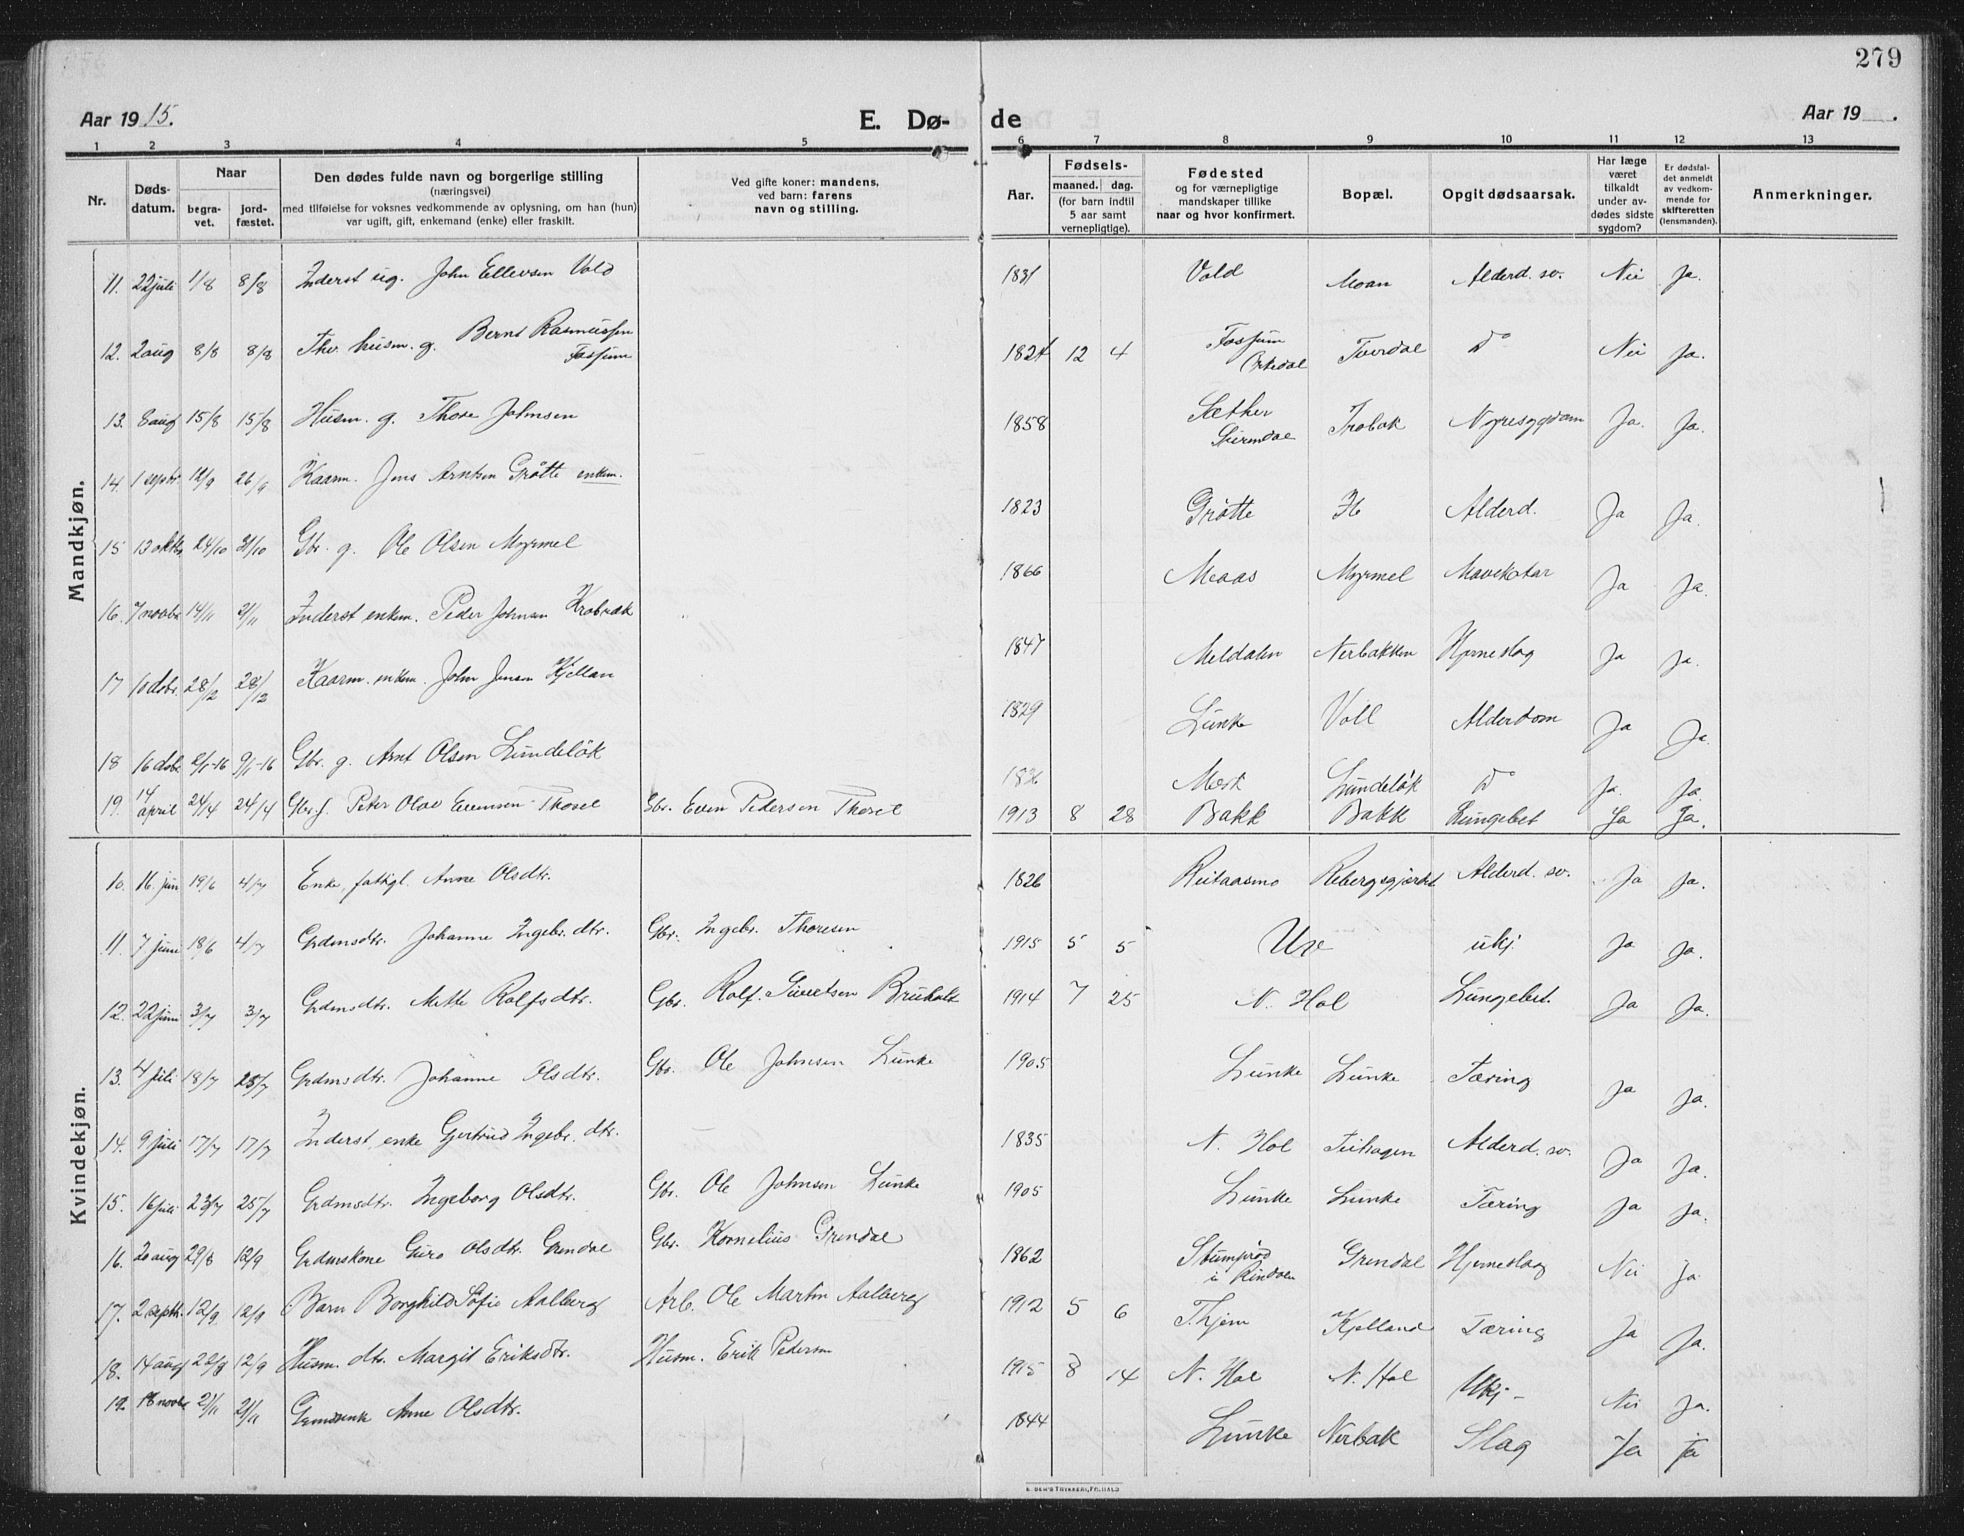 279
Aar 1915.
E. Dø- de
Aar 19 .
1 2 3 4 5 6 7 8 9 10 11 12 13
Nr.
Døds-
datum.
Naar
begra-
vet.
jord-
fæstet.
Den dødes fulde navn og borgerlige stilling
(næringsvei)
med tilføielse for voksnes vedkommende av oplysning, om han (hun)
var ugift, gift, enkemand (enke) eller fraskilt.
Ved gifte koner: mandens,
ved barn: farens
navn og stilling.
Aar.
Fødsels-
maaned. dag.
(for barn indtil
5 aar samt
vernepligtige).
Fødested
og for værnepligtige
mandskaper tillike
naar og hvor konfirmert.
Bopæl.
Opgit dødsaarsak.
Har læge
været
tilkaldt
under av-
dødes sidste
sygdom?
Er dødsfal-
det anmeldt
av vedkom-
mende for
skifteretten
(lensmanden).
Anmerkninger.
Mandkjøn.
11. 22 juli 1/8 8/8 Inderst ug. John Ellevsen Vold 1831 Vold Moan Alderd. sv. Nei Ja.
12. 2 aug 8/8 8/8 husm. g. Bernt Rasmussen Fossum 1824 12 4 Fossum Orkedal Do Nei Ja.
13. 8 aug 15/8 15/8 Husm. g. Thore Johnsen 1858 Sæther Nyresygdom Ja. Ja.
14. 1 septbr. 12/9 26/9 Kaarm. Jens Arntsen Grötte enkem. 1823 Grötte Alderd. Ja Ja.
15 13 oktbr. 24/10 31/10 Gbr. g. Ole Olsen Myrmel 1866 Meaas Myrmel Mavekatar Ja Ja.
16. 7 novbr 14/11 21/11 Inderst enkem. Peder Johnsen 1847 Meldalen Nerbakken Hjerneslag Ja Ja.
17 10 dsbr. 28/12 28/12 Kaarm. enkem. John Jensen Kjellan 1829 Lünke Voll Alderdom Ja Ja.
18 16 dsbr 2/1-16 9/1-16 Gbr. g. Arnt Olsen Lundelök 1836 Lundelök Do Ja. Ja.
19. 14 april 24/4 24/4 Peter Olav Evensen Thosel Gbr. Even Pedersen Thosel 1913 8 28 Bakk Bakk Lungebet Ja Ja.
Kvindekjøn.
10. 16. jun 19/6 4/7 Enke, fattigl. Anne Olsdtr. 1826 Reitaasmo Alderd. sv. Ja Ja.
11. 7 juni 18/6 4/7 Grdmsdtr. Johanne Ingebr. dtr. Gbr. Ingebr. Thoresen 1915 5 5 ukj. Ja Ja.
12. 22 juni 3/7 3/7 Grdmsdtr. Mette Rolfsdtr. Gbr. Rolf. Sivertsen Bruholt 1914 7 25 N. Hol Lungebet. Ja Ja.
13. 4 juli 18/7 25/7 Grdmsdtr. Johanne Olsdtr. Gbr. Ole Johnsen Lünke 1905 Lünke Lünke Tæring Ja Ja.
14. 9 juli 17/7 17/7 Inderst, enke Gjertrud Ingebr. dtr. 1835 N. Hol Alderd. sv. Ja Ja.
15. 16 juli 23/7 25/7 Grdmsdtr. Ingeborg Olsdtr. Gbr. Ole Johnsen Lünke 1905 Lünke Lünke Tæring Ja Ja.
16. 20 aug 29/8 12/9 Grdmskone Guro Olsdtr. Grendal Gbr. Kornelius Grendal 1862 i Rindalen Grendal Hjerneslag Nei Ja
17. 2 septbr. 12/9 12/9 Barn Borghild Sofie Aalberg Arb. Ole Martin Aalberg 1912 5 6 Thjem Kjelland Tæring Ja Ja.
18. 14 aug 22/8 12/9 Husm. dtr. Margit Eriksdtr. Husm. Erik Pedersen 1915 8 14 N. Hol N. Hol Ukj. Nei Ja.
19. 18 novbr 21/11 21/11 Anne Olsdtr. 1844 Lünke Nerbak Slag Ja Ja
E. SEM'S TRYKKERI, FR.HALD